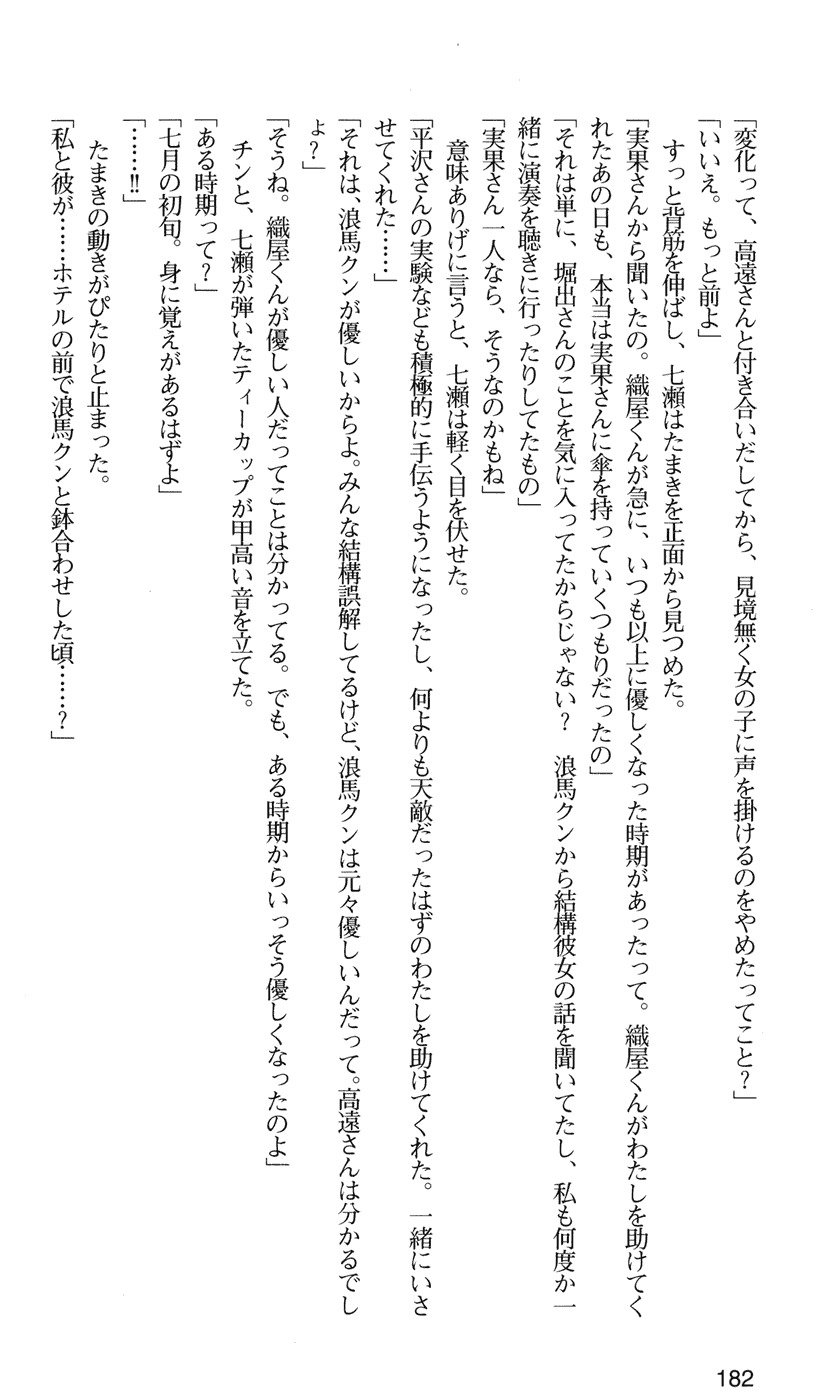 「変化って、高遠さんと付き合いだしてから、見境無く女の子に声を掛けるのをやめたってこと？」
「いいえ。もっと前よ」
　すっと背筋を伸ばし、七瀬はたまきを正面から見つめた。
「実果さんから聞いたの。織屋くんが急に、いつも以上に優しくなった時期があったって。織屋くんがわたしを助けてく
れたあの日も、本当は実果さんに傘を持っていくつもりだったの」
「それは単に、堀出さんのことを気に入ってたからじゃない？　浪馬クンから結構彼女の話を聞いてたし、私も何度か一
緒に演奏を聴きに行ったりしてたもの」
「実果さん一人なら、そうなのかもね」
　意味ありげに言うと、七瀬は軽く目を伏せた。
「平沢さんの実験なども積極的に手伝うようになったし、何よりも天敵だったはずのわたしを助けてくれた。一緒にいさ
せてくれた……」
「それは、浪馬クンが優しいからよ。みんな結構誤解してるけど、浪馬クンは元々優しいんだって。高遠さんは分かるでし
ょ？」
「そうね。織屋くんが優しい人だってことは分かってる。でも、ある時期からいっそう優しくなったのよ」
　チンと、七瀬が弾いたティーカップが甲高い音を立てた。
「ある時期って？」
「七月の初旬。身に覚えがあるはずよ」
「……!!」
　たまきの動きがぴたりと止まった。
「私と彼が……ホテルの前で浪馬クンと鉢合わせした頃……？」
182